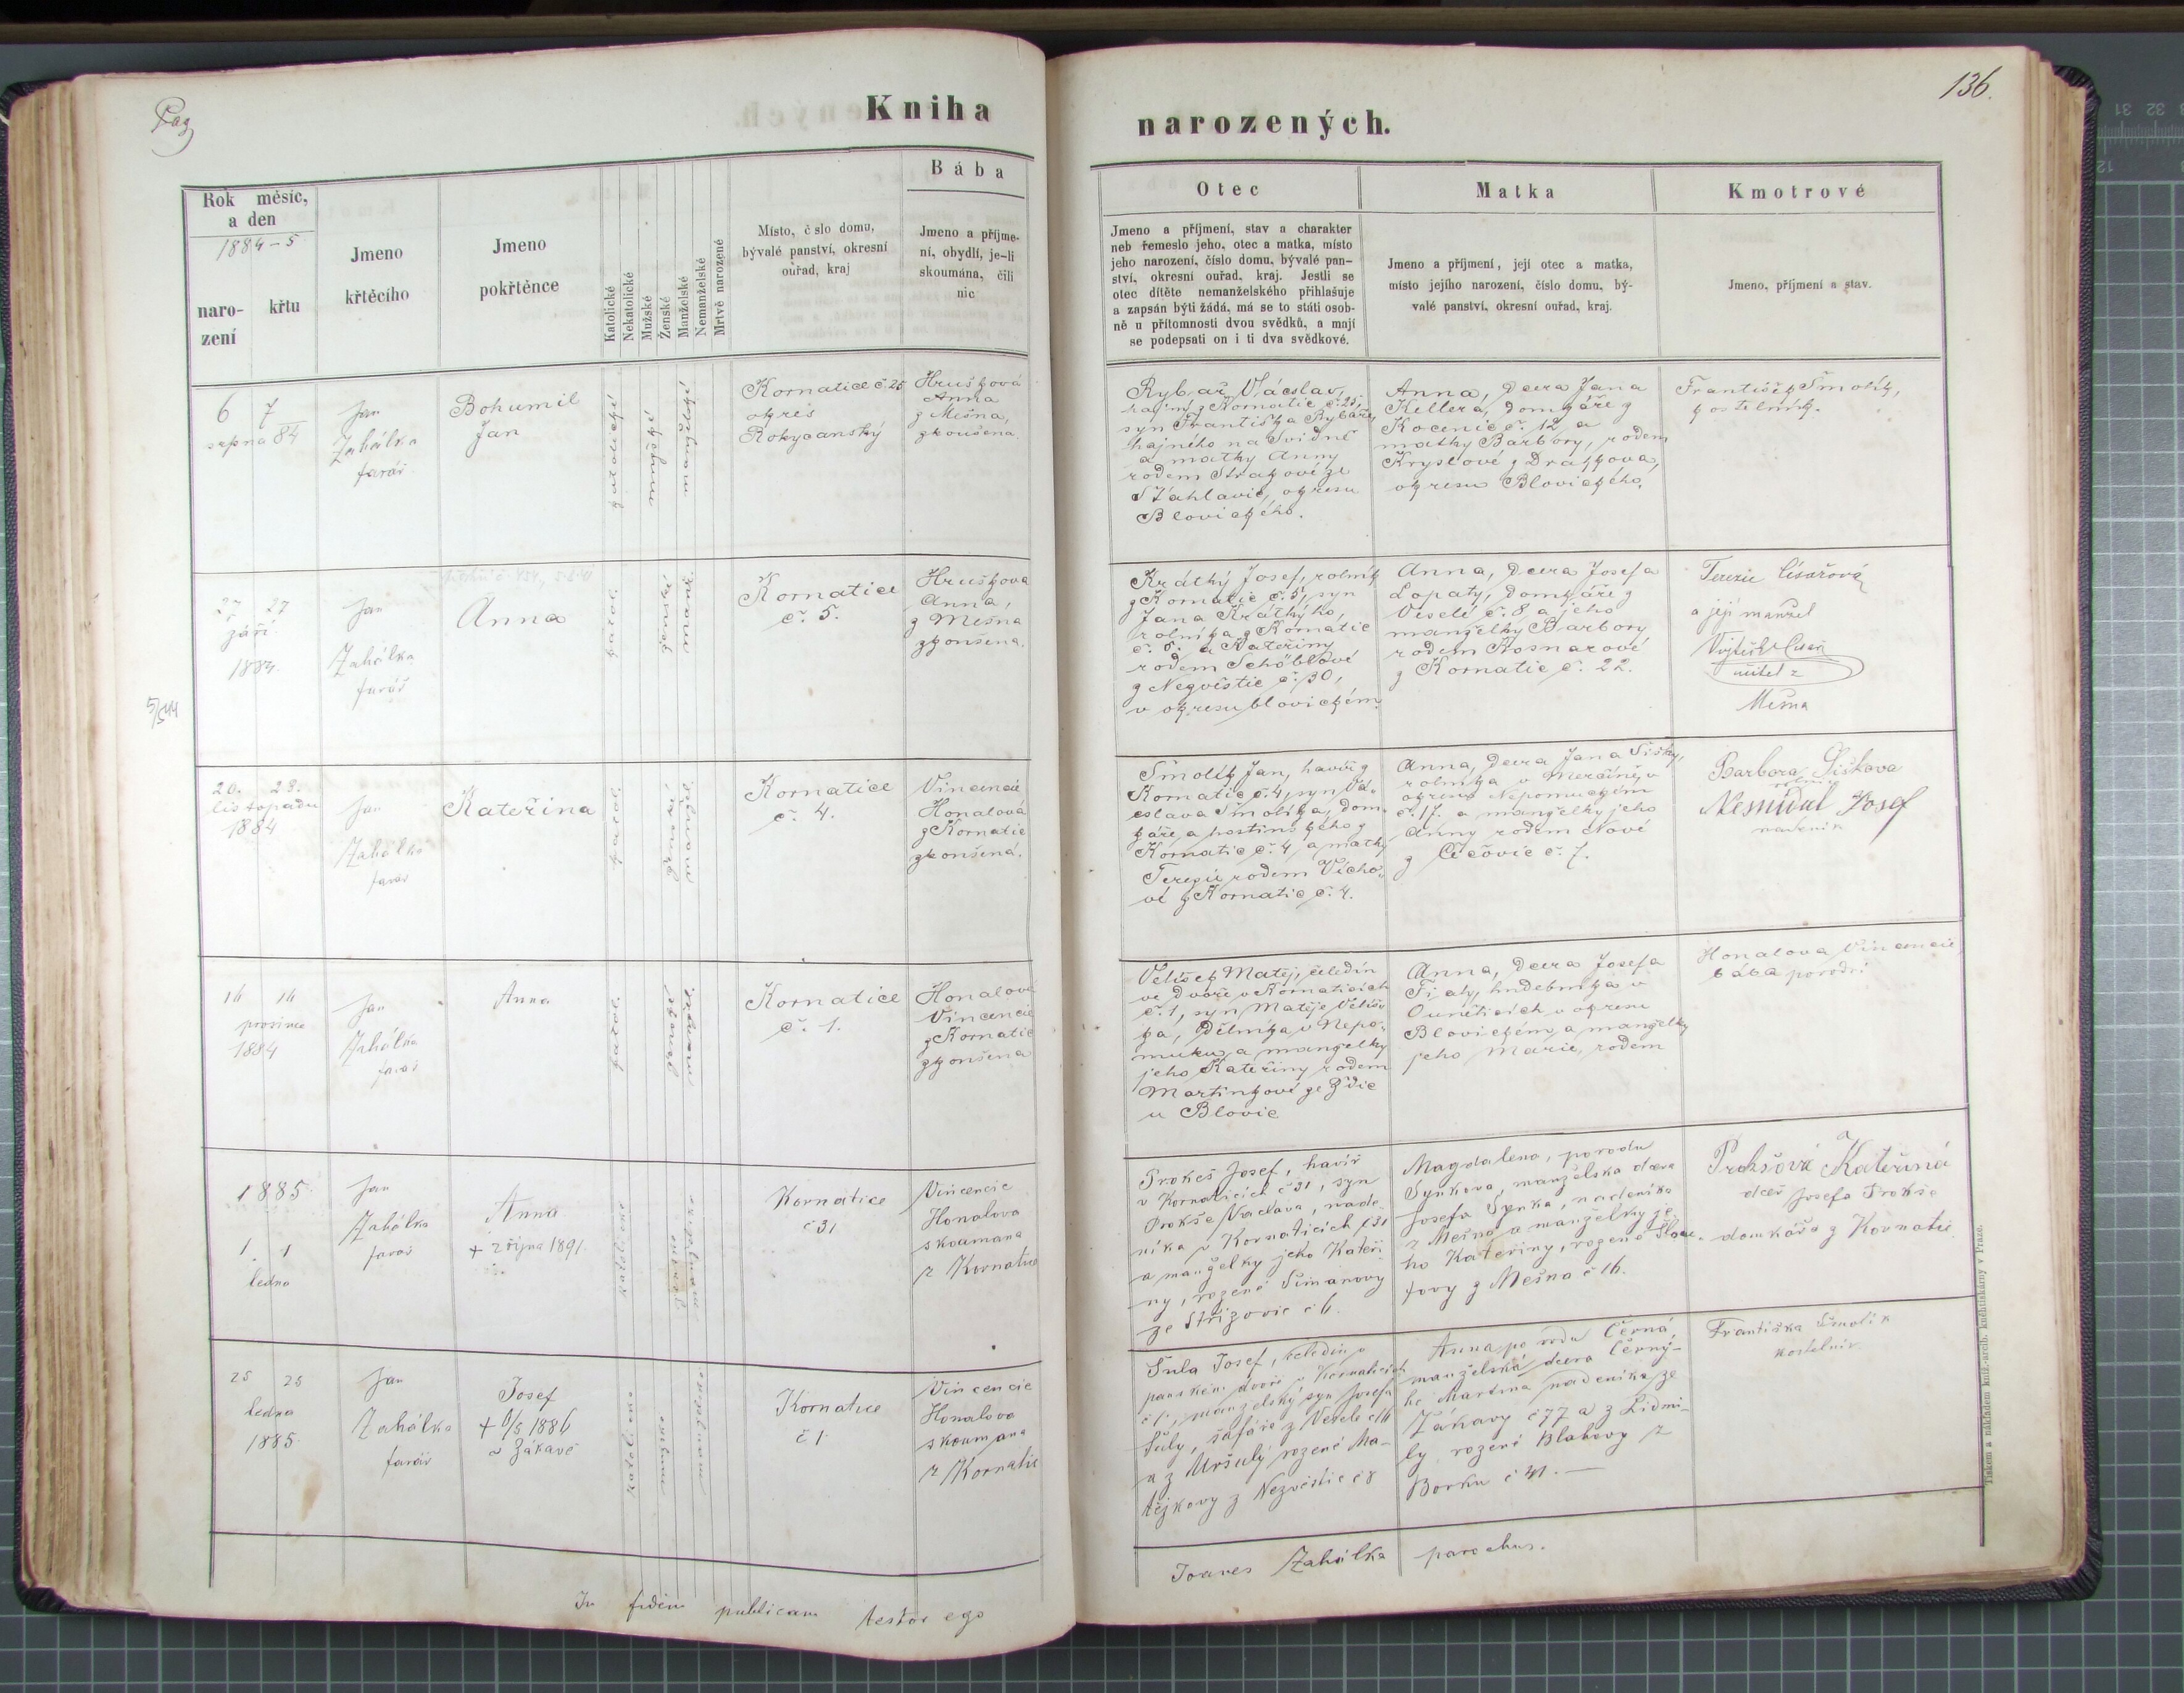 Pag
Kniha
narozených.
136.
Rok měsíc,
a den
1884-5
naro-
zení
křtu
Jmeno
křtěcího
Jmeno
pokřtěnce
Katolické
Nekatolické
Mužské
Ženské
Manželské
Nemanželské
Mrtvě narozené
Místo, č slo domu,
bývalé panství, okresní
ouřad, kraj
Bába
Jmeno a příjme-
ní, obydlí, je-li
skoumána, čili
nic
Otec
Jmeno a příjmení, stav a charakter
neb řemeslo jeho, otec a matka, místo
jeho narození, číslo domu, bývalé pan-
ství, okresní ouřad, kraj. Jestli se
otec dítěte nemanželského přihlašuje
a zapsán býti žádá, má se to státi osob-
ně u přítomnosti dvou svědků, a mají
se podepsati on i ti dva svědkové.
Matka
Jmeno a příjmení, její otec a matka,
místo jejího narození, číslo domu, bý-
valé panství, okresní ouřad, kraj.
Kmotrové
Jmeno, příjmení a stav.
6 7
srpna 84
Jan
Zahálka
farář
Bohumil
Jan
katolické
mužské
manželské
Kornatice č. 25
okres
Rokycanský
Hrušková
Anna
z Mešna,
zkoušená
Rybař Václav,
z Kornatic č. 25,
syn Františka Rybáře,
hajného na Svidné
a matky Anny
rodem Strakové ze
Šťáhlavic, okresu
Blovického.
Anna, dcera Jana
Kellera, domkáře z
Kocenic č. 12 a
matky Barbory, rodem
Kryslové z Dražkova,
okresu Blovického.
František Smolík,
kostelník.
27 27
září
1884.
Jan
Zahálka
farář
Anna
katol.
ženské
manž.
Kornatice
č. 5.
Hrušková
Anna,
z Mešna
zkoušena.
Krátký Josef, rolník
z Kornatic č. 5, syn
Jana Krátkýho,
rolníka z Kornatic
č. 5. a Kateřiny
rodem Schöblové
z Nezvěstic č. 30,
v okresu blovickém.
Anna, dcera Josefa
Lopaty, domkáře z
Veselé č. 8 a jeho
manželky Barbory
rodem Kosnarové
z Kornatic č. 22.
Terezie Císařová
a její manžel
Vojtěch Císař
učitel z
Mešna
5/5 44
20. 23.
listopadu
1884
Jan
Zahálka
farář
Kateřina
katol.
ženské
Kornatice
č. 4.
Vincencie
Honalová
z Kornatic
zkoušená.
Smolík Jan, havíř z
Kornatic č. 4, syn Vá-
cslava Smolíka, dom-
káře a hostinského z
Kornatic č. 4, a matky
Terezie rodem Vícho-
vé z Kornatic č. 4.
Anna, dcera Jana Šišky,
rolníka v Merčíně, v
okresu Nepomuckém
č. 17. a manželky jeho
Anny rodem Nové
z Čičovic č. 7.
Barbora Šiškova
Nesnídal Josef
14 14
prosince
1884
Jan
Zahálka
farář
Anna
katol.
ženské
Kornatice
č. 1.
Honalová
Vincencie
z Kornatic
zkoušena
Velíšek Matěj, čeledín
ve dvoře v Kornaticích
č. 1, syn Matěje Velíš-
ka, dělníka v Nepo-
muku, a manželky
jeho Kateřiny rodem
Martinkové ze Ždic
u Blovic
Anna, dcera Josefa
Fialy, hudebníka v
Ouněticích v okresu
Blovickém, a manželky
jeho Marie, rodem
Honalova Vincencie,
bába porodní
1885
1. 1
ledna
Jan
Zahálka
farář
Anna
+ 2 října 1891.
katolické
ženské
Kornatice
č 31
Vincencie
Honalova
skoumana
z Kornatic
Prokeš Josef, havíř
v Kornaticích č 31, syn
Prokše Václava, nade-
níka v Kornaticích č 31
a manželky jeho Kateři-
ny, rozené Šimanovy
ze Střížovic č 6.
Magdalena, porodu
Synkova, manželska dcera
Josefa Synka, nadeníka
z Mešna a manželky je-
ho Kateřiny, rozené
fovy z Mešna č 16.
Prokšová Kateřina
dceř Josefa Prokše
domkáře z Kornatic
25 25
ledna
1885.
Jan
Zahálka
farář
Josef
+ 6/5 1886
v Žákavé
katolické
mužské
Kornatice
č 1
Vincencie
Honalova
skoumana
z Kornatic
Šula Josef, čeledín v
panském dvoře v Kornaticích
č 1., manželský syn Josefa
Šuly, šafáře z Veselé č 16
a z Uršuly rozené Ma-
tějkovy z Nezvěstic č 8
Anna po rodu Černá,
manželská dcera Černý-
ho Martina nadeníka ze
Žákavy č 77 a z Lidmi-
ly rozené Blahovy z
Borku č 41. —
Františka Smolík
kostelník
In fidem publicam testor ego
Joanes Zahálka parochus.
Tiskem a nákladem kníž.-arcib. knihtiskárny v Praze.